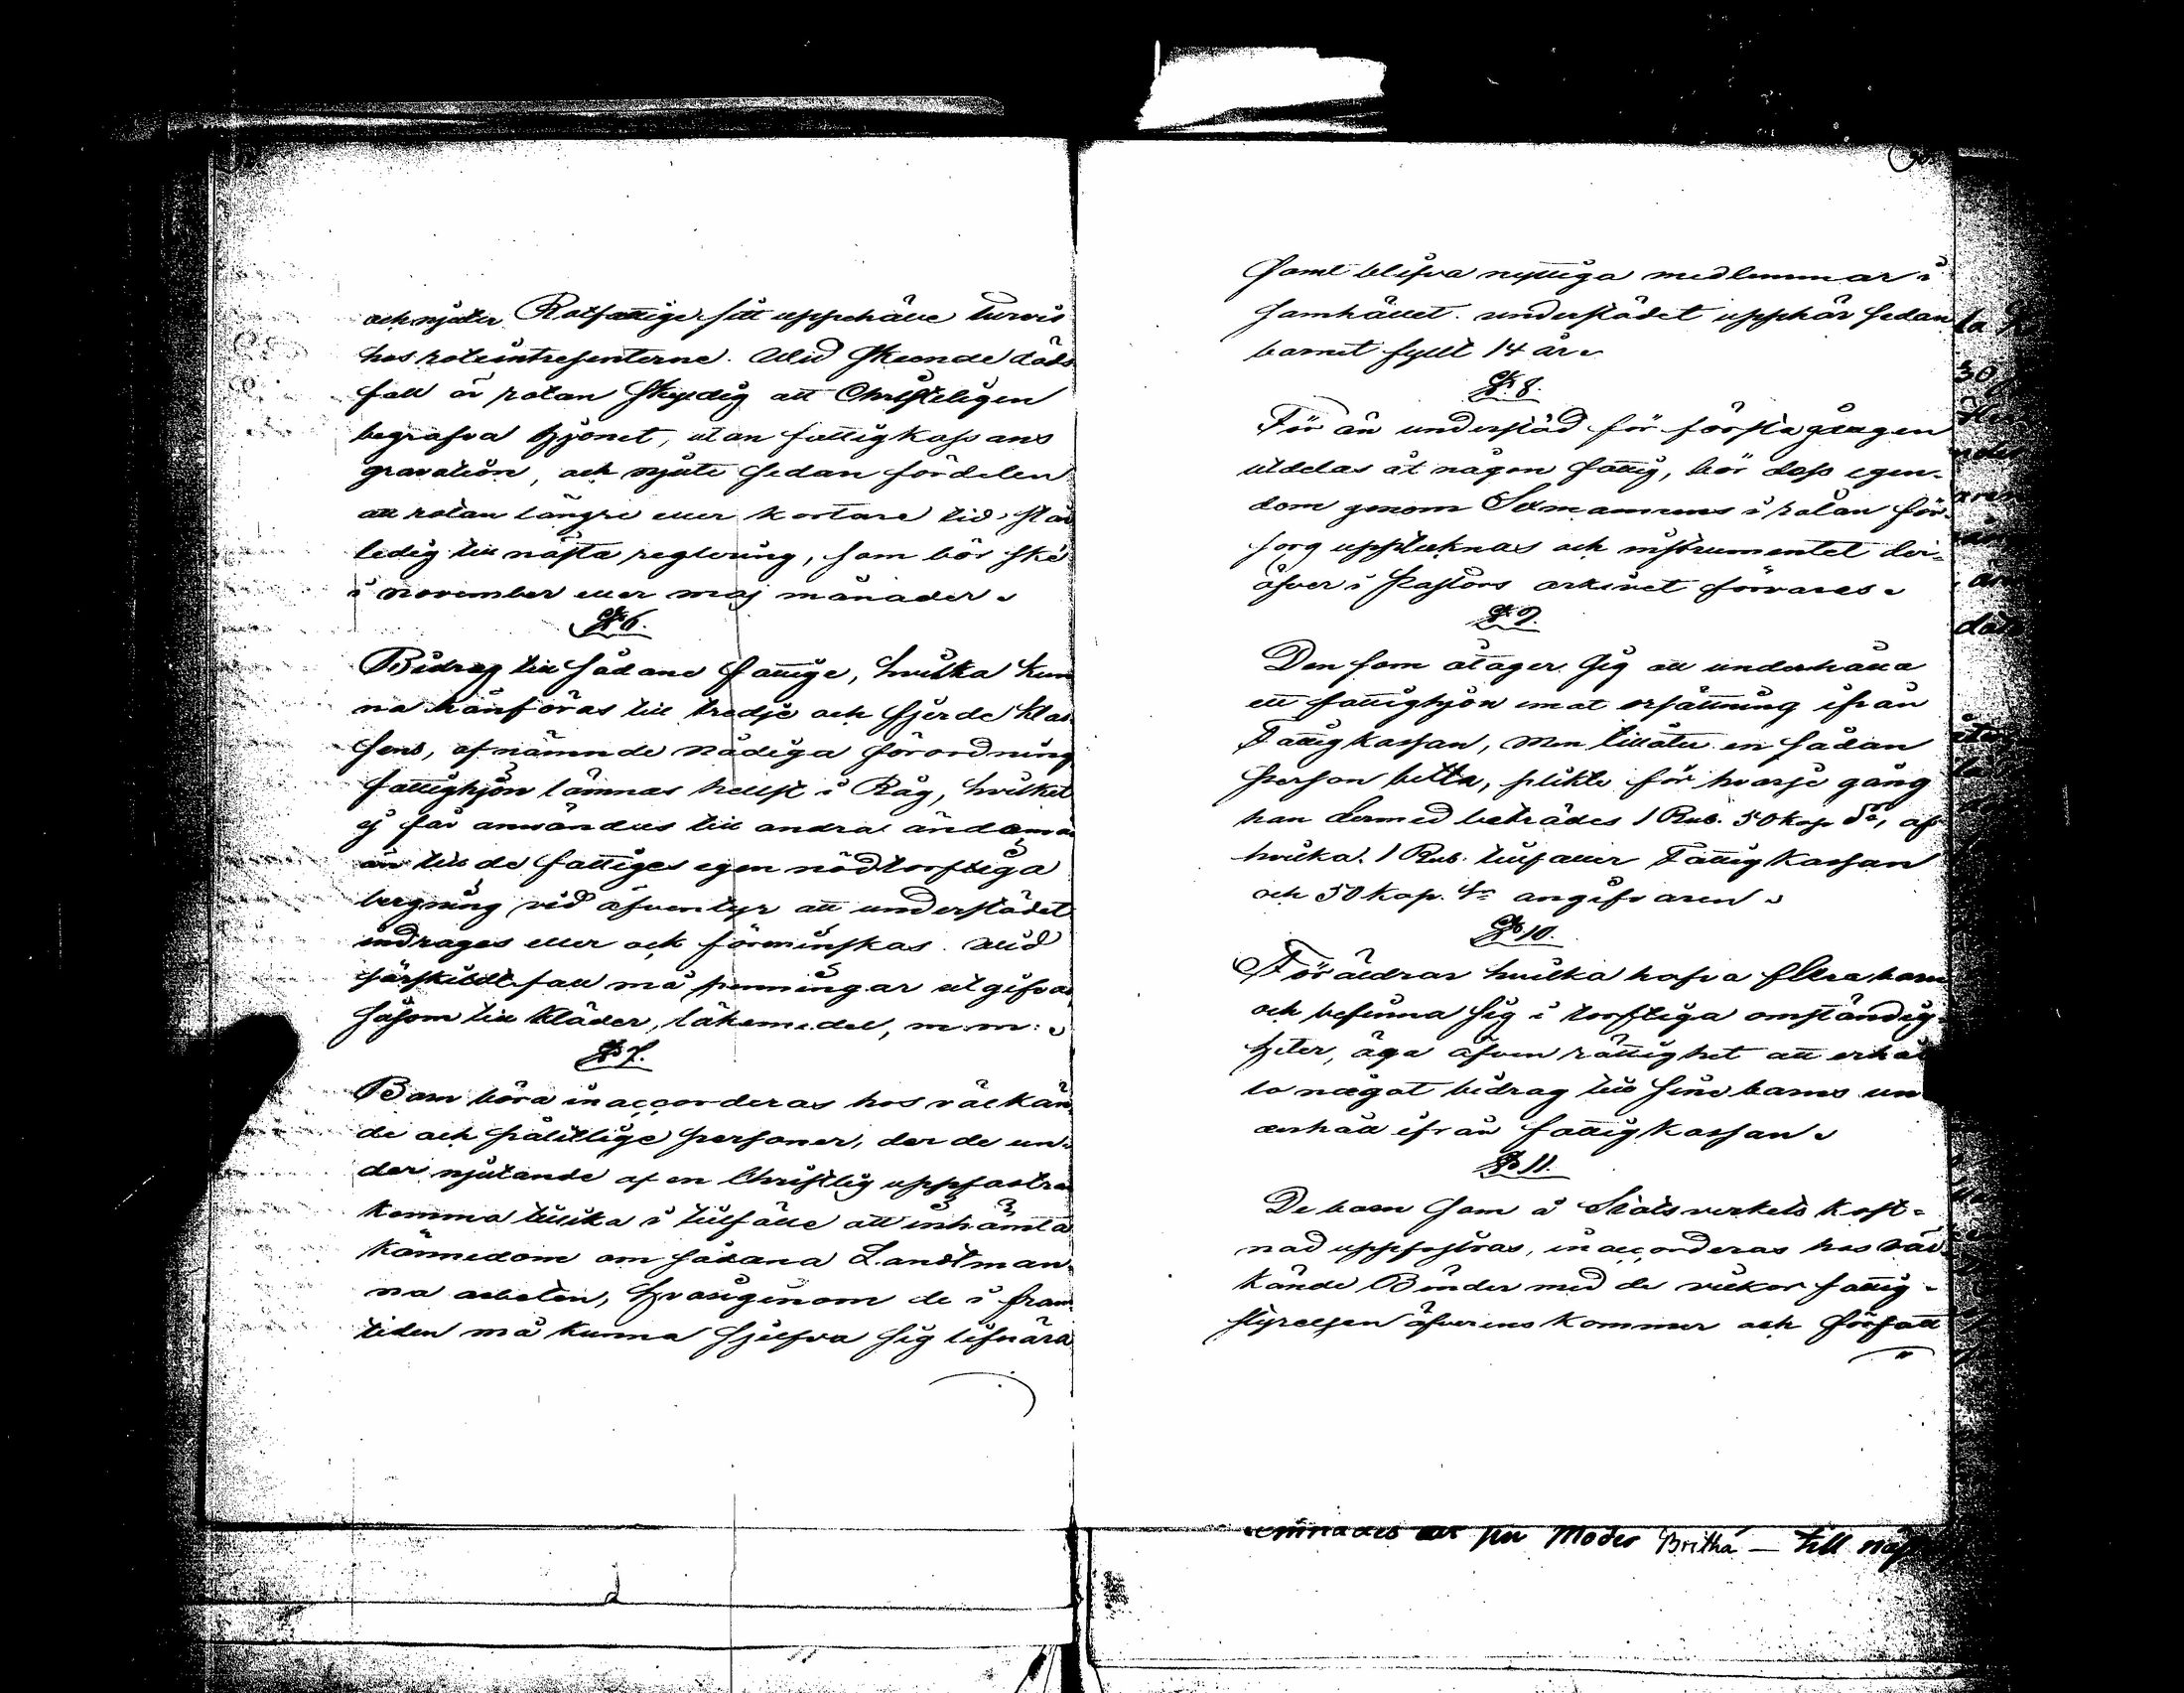 och njuter Rotfattige sitt uppehälle turvis
hos roteintressenterne. Wid skeende döds
fall är rotan skyldig att Christeligen
begrafva hjonet, utan fattigkassans
gravation, och njute sedan fördelen
att rotan längre eller kortare tid står
ledig till nästa reglering, som bör ske
i november eller maj månader.
§ 6.
Bidrag till sådane fattige, hvilka kun
na hänföras till tredje och fjerde klas
sens, af nämnde nådiga förordning
fattighjon lämnas hellst i Råg, hvilket
ej får användas till andra ändamå
än till de fattiges egen nödtorftiga
bergning vid äfventyr att understödet
indrages eller ock förminskas. Wid
särskildt fall må penningar utgifvas
såsom till kläder, läkemedel, m.m.
§ 7.
Barn böra inaccorderas hos välkän
de och pålitlige personer, der de un-
der njutande af en Christlig uppfostra
komma tillika i tillfälle att inhämta
kännedom om sådana Landtman-
na arbeten, hvarigenom de i fram
tiden må kunna sjelfva sig lifnära
samt blifva nyttiga medlemmar i
samhället. understödet upphör sedan
barnet fyllt 14 år.
§ 8.
För än understöd för första gången
utdelas åt någon fattig, bör dess egen-
dom genom Sexmannens i rotan för-
sorg upptecknas och instrumentet der-
öfver i Pastors arkivet förvaras.
§ 9.
Den som åtager sig att underhålla
ett fattighjon emot ersättning ifrån
Fattigkassan, men tillåter en sådan
person bettla, plikte för hvarje gång
han dermed beträdes 1 Rub. 50 kop. Sr, af
hvilka 1 Rub. tillfaller Fattigkassan
och 50 kop. Sr angifvaren.
§ 10.
Föräldrar hvilka hafva flera barn
och befinna sig i torftiga omständig-
heter, äga äfven rättighet att erhål
la något bidrag till sine barns un
derhåll ifrån fattigkassan.
§ 11.
De barn som å Statsverkets kost-
nad uppfostras, inaccorderas hos väl-
kände Bönder med de vilkor fattig-
styrelsen öfverenskommer och författ
per Moder Britha — till